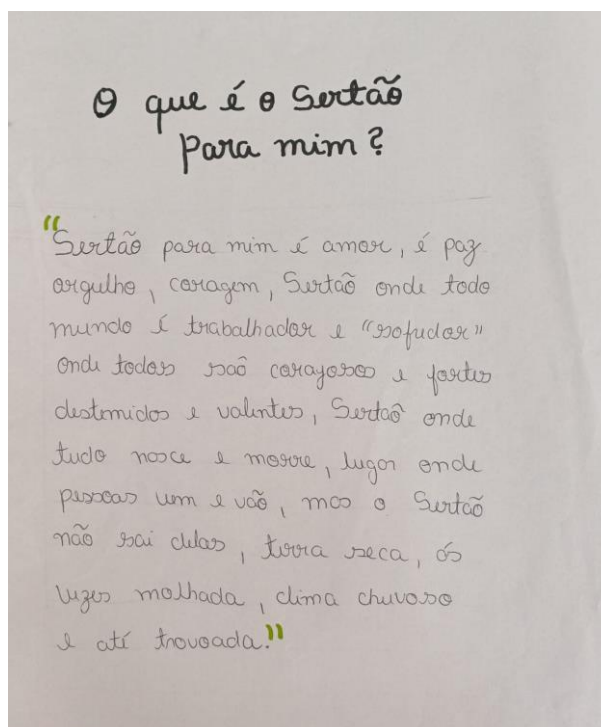 O que é o Sertão
Para mim?
"Sertão para mim é amor, é paz
orgulho, coragem, Sertão onde todo
mundo é trabalhador e "sofudor"
onde todos são corajosos e fortes
destemidos e valentes, Sertão onde
tudo nasce e morre, lugar onde
pessoas vem e vão, mas o Sertão
não sai delas, terra seca, ás
vezes molhada, clima chuvoso
e até trovoada."